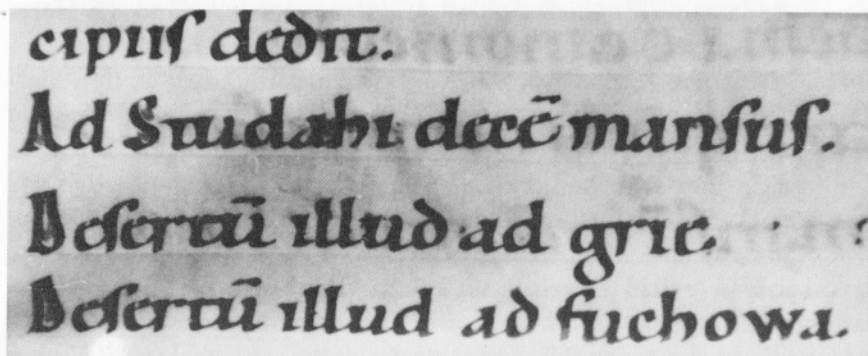 cipiis dedit.
Ad Studahi decē mansus.
Desertū illud ad gric.
Desertū illud ad fuchowa.